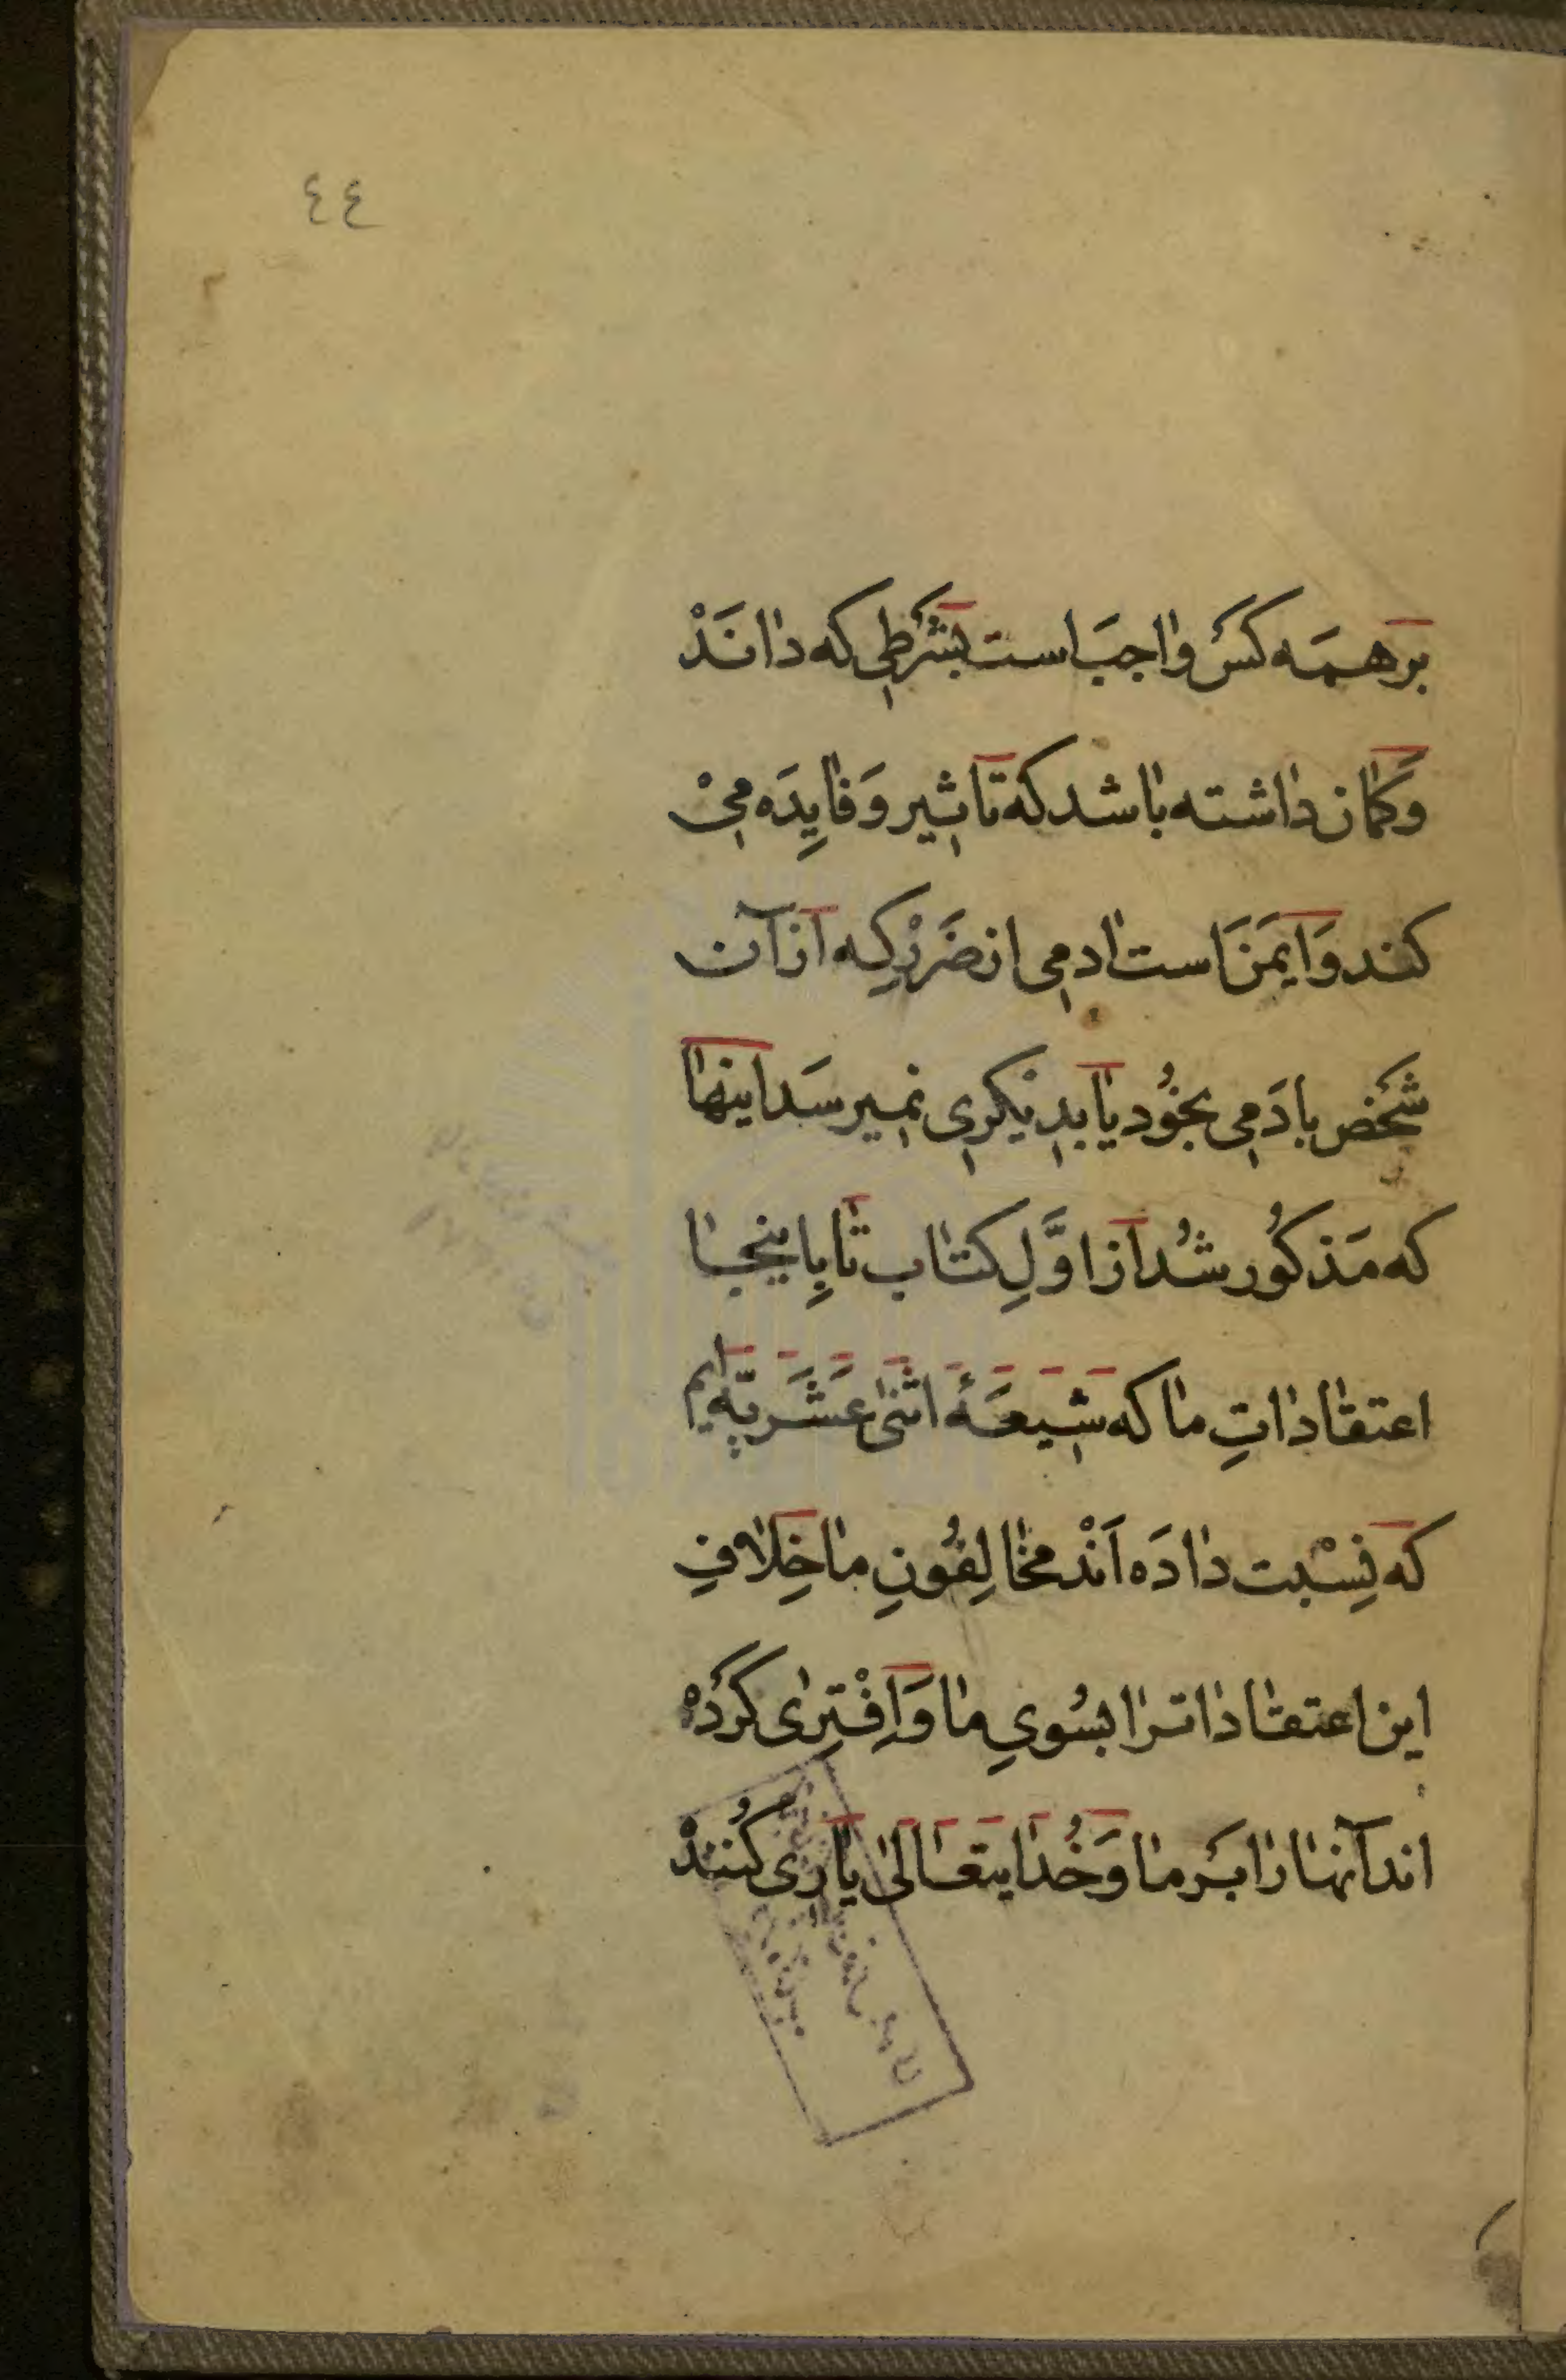 ٤٤
بَرهمَه كَسْ واجبَ است بشَرطي كه دانَدْ
وَكمان داشته باشد كَه تاثير وَ فايِدَه ميْ
كند وَ ايمَنَ است ادمي از ضَرَرْ كِه اَز آن
شَخْص بادَمي بخُود يا بديكَري نميرسَد اينها
كه مَذكُور شُد اَز اوَّلِ كتاب تا بِاينجا
اعتقاداتِ ما كه شيعَهٔ اثنىٰ عَشَريّه ايم
كه نِسْبت دادَه اَنْد مخالِفُونِ ما خِلافِ
اين اعتقاداترا بسُويِ ما وَ اِفْتِرىٰ كَرْدَهْ
اند آنها را بَر ما وَ خُدايتعَالىٰ ياري كُنَنْد